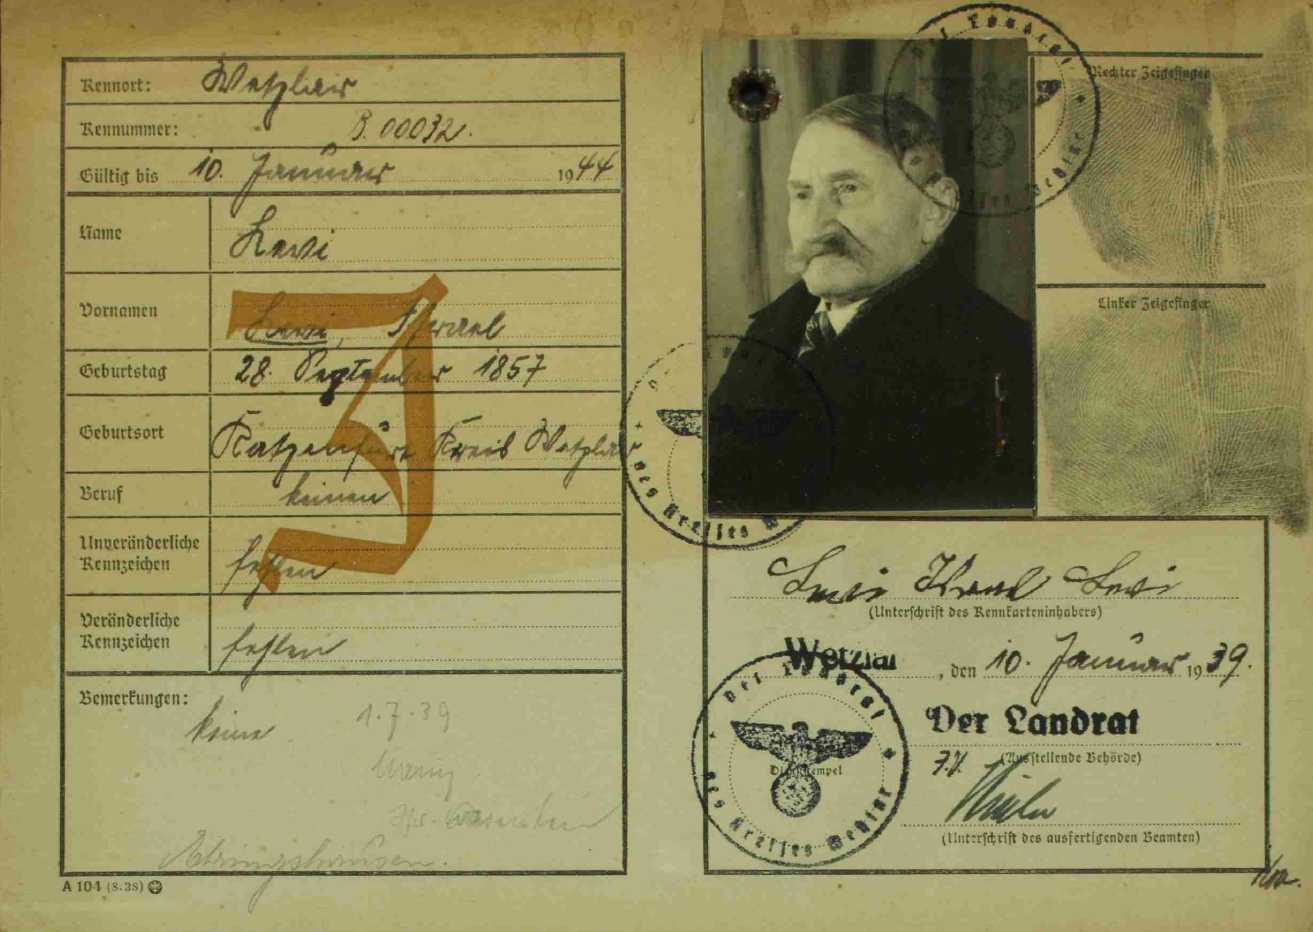 Kennort: Wetzlar
Kennummer: B. 00032.
Gültig bis 10. Januar 1944
Name Levi
Vornamen Levi, Israel
Geburtstag 28. September 1857
Geburtsort Katzenfurt Kreis Wetzlar
Beruf keinen
Unveränderliche
Kennzeichen fehlen
Veränderliche
Kennzeichen fehlen
Bemerkungen:
keine 1.7.39
A 104 (8. 38)
J
Rechter Zeigefinger
Linker Zeigefinger
Der Landrat
des Kreises Wetzlar
Levi Israel Levi
(Unterschrift des Kennkarteninhabers)
Wetzlar, den 10. Januar 1939.
Der Landrat
(Ausstellende Behörde)
Der Landrat
des Kreises Wetzlar
Dienststempel
(Unterschrift des ausfertigenden Beamten)